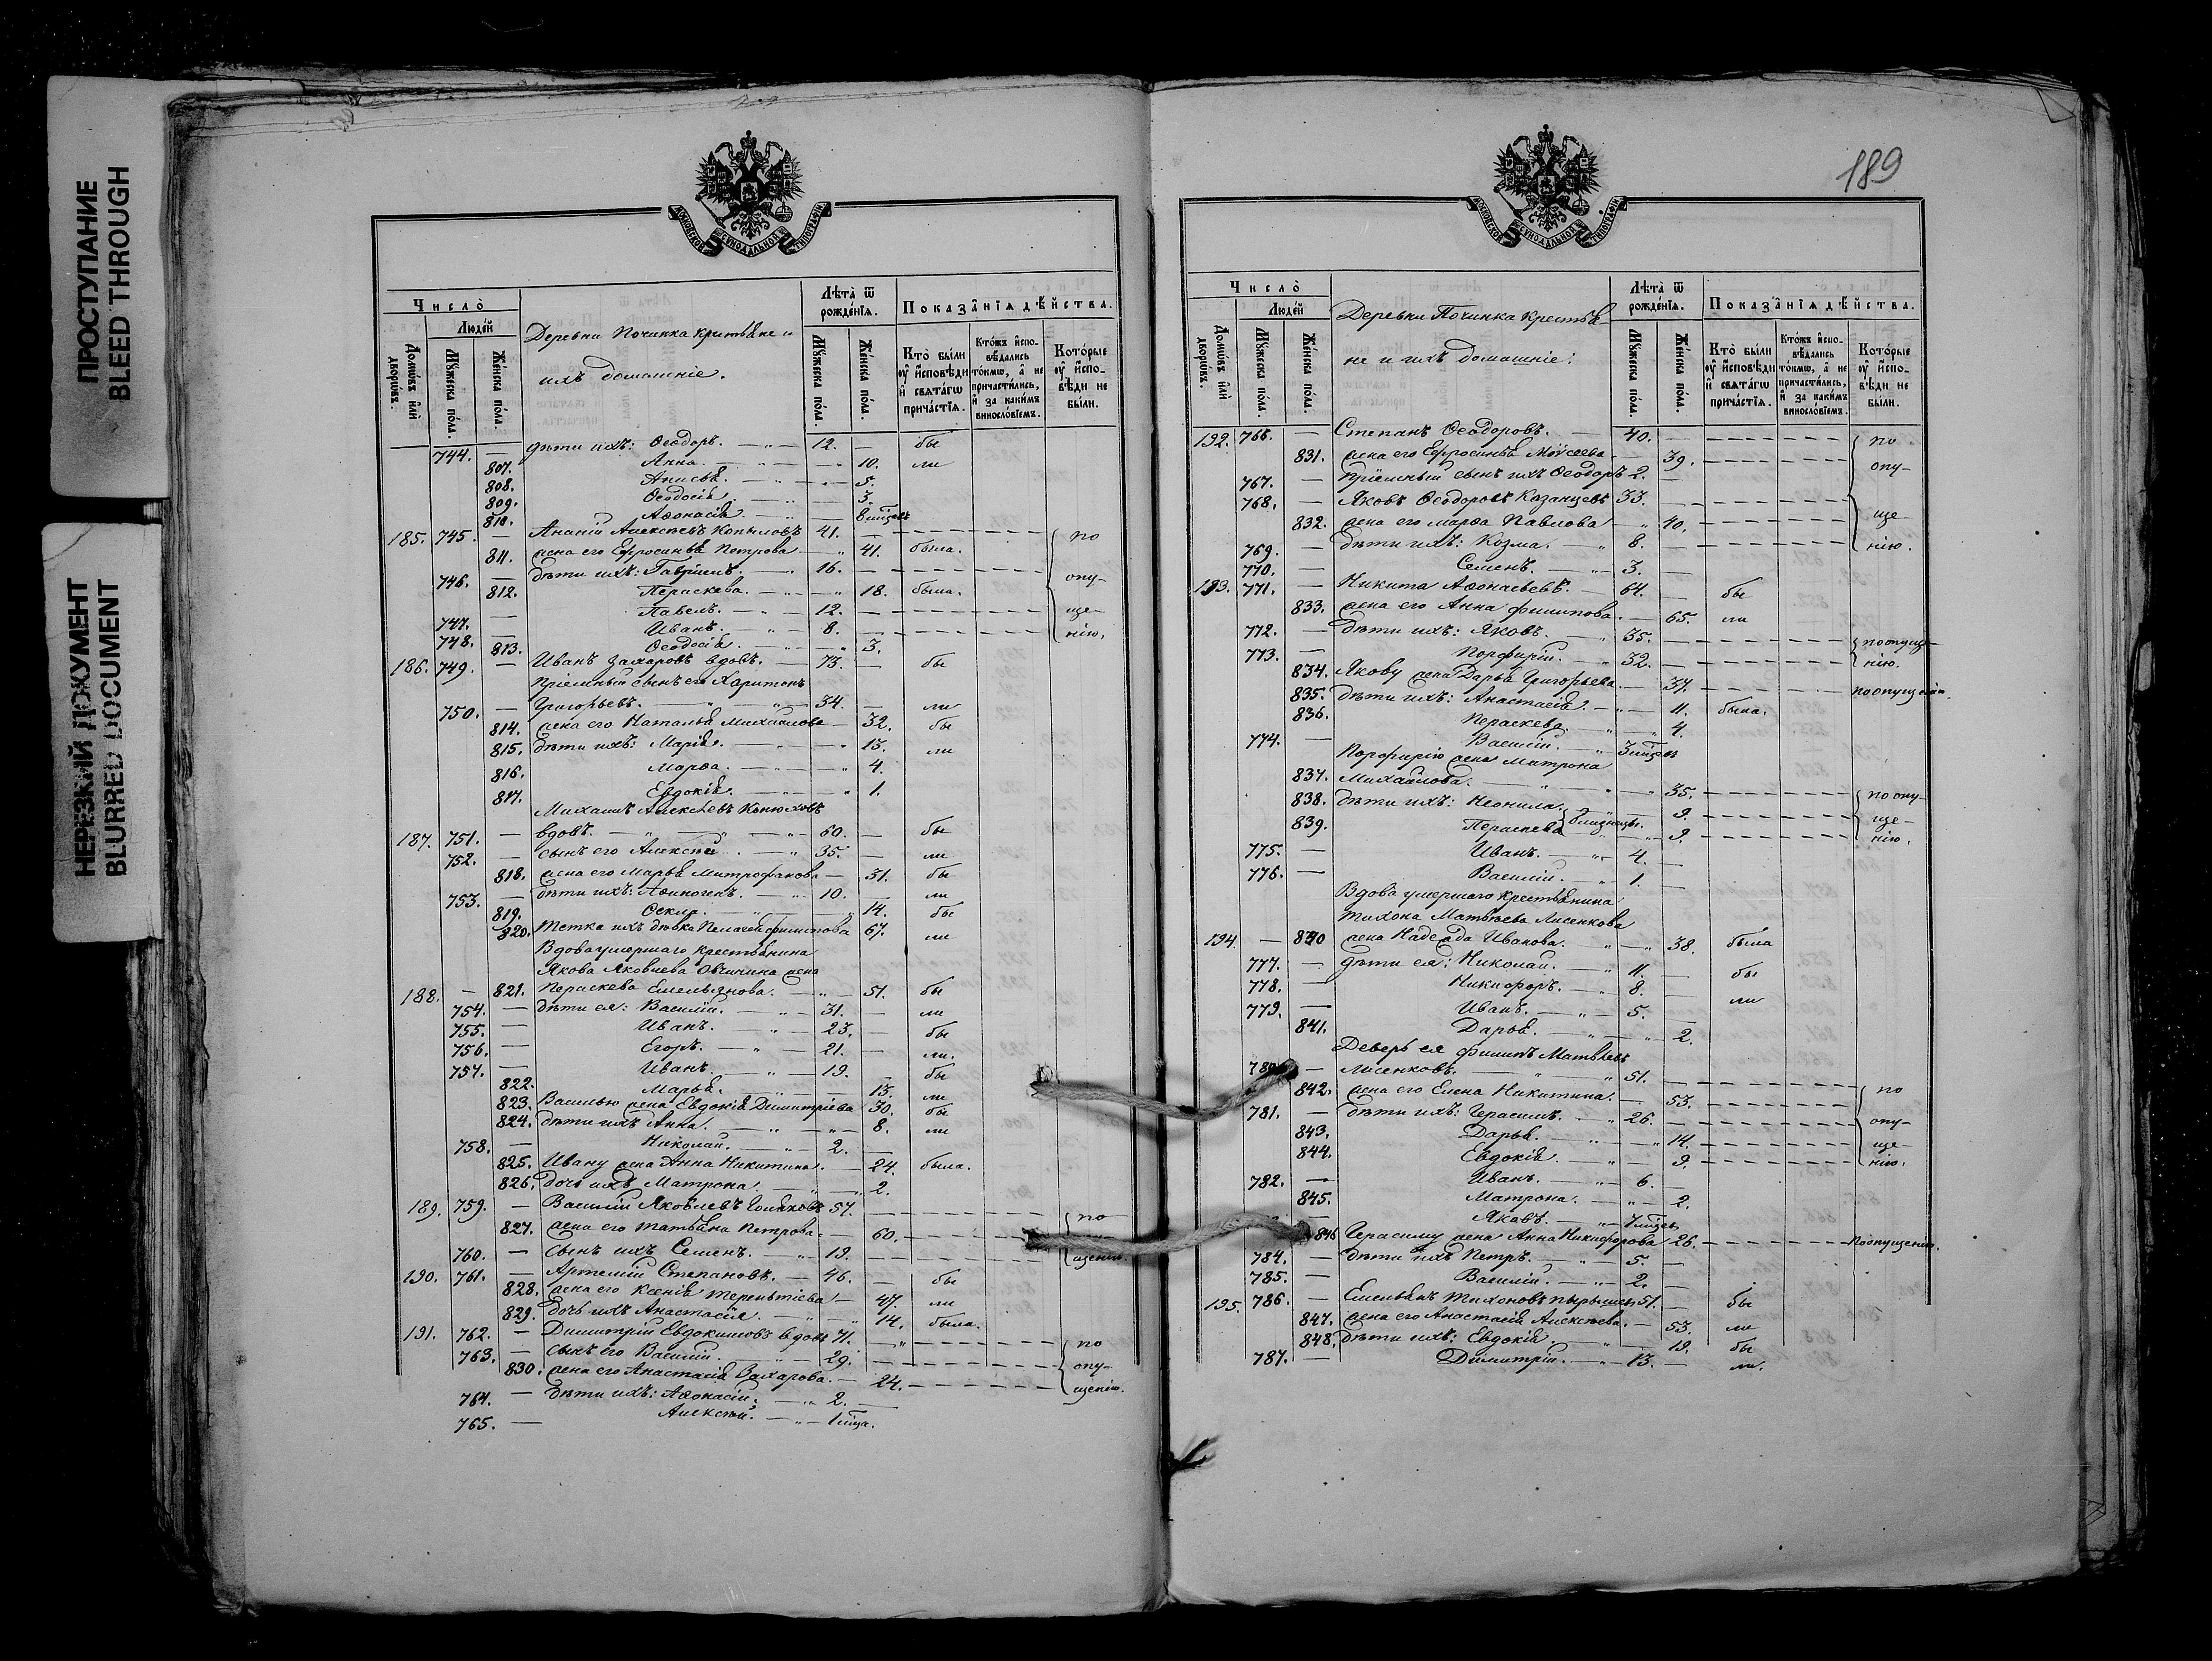 ПРОСТУПАНИЕ
BLEED THROUGH
НЕРЕЗКИЙ ДОКУМЕНТ
BLURRED DOCUMENT
МОСКОВСКОЙ СѴНОДАЛЬНОЙ ТИПОГРАФІИ
Число̀
Людей
Домѡвъ и҆лѝ дворѡвъ.
Мꙋжеска пола.
Женска пола.
Деревни Починка крестьяне и
ихъ домашніе.
Лѣта̀ ѿ рожденїѧ.
Мꙋжеска пола.
Женска пола.
Показанїѧ дѣйства.
Кто̀ были ᲂу҆ и҆сповѣди и҆ свѧтагѡ причастїѧ.
Ктожъ и҆сповѣдались токмѡ, а҆ не причастились, и҆ за какимъ винословїемъ.
Которые ᲂу҆ и҆сповѣди не были.
744. — дѣти ихъ: Ѳеодоръ. — 12. — бы
807. Анна. — 10. ли
808. Анисья. — 5.
809. Ѳеодосія. — 3.
810. Аѳонасія. — 8 мѣсяц.
185. 745. — Ананій Алексѣевъ Копыловъ 41. — по
811. жена его Ефросинья Петрова — 41. была.
746. — дѣти ихъ: Гавріилъ. — 16. — опу-
812. Пераскева. — 18. была.
747. — Павелъ. — 12. — ще-
748. — Иванъ. — 8. — нію.
813. Ѳеодосія. — 3.
186. 749. — Иванъ Захаровъ вдовъ. — 73. — бы
Пріемный сынъ его Харитонъ
750. — Григорьевъ. — 34. — ли
814. жена его Наталья Михайлова — 32. бы
815. дѣти ихъ: Марія. — 13. ли
816. Марѳа. — 4.
817. Евдокія. — 1.
Михаилъ Алексѣевъ Конюховъ
187. 751. — вдовъ. — 60. — бы
752. — сынъ его Алексѣй. — 35. — ли
818. жена его Марья Митрофанова — 31. бы
753. — дѣти ихъ: Аѳиногенъ. — 10. — ли
819. — 14. бы
820. Тетка ихъ дѣвка Пелагея Филипова 67. ли
Вдова умершаго крестьянина
Якова Яковлева Овчинина жена
188. — 821. Пераскева Емельянова. — 51. бы
754. — дѣти ея: Василій. — 31. — ли
755. — Иванъ. — 23. — бы
756. — Егоръ. — 21. — ли.
757. — Иванъ. — 19. — бы
822. Марья. — 13. ли
823. Василью жена Евдокія Димитріева 30. бы
824. дѣти ихъ Анна. — 8. ли
758. — Николай. — 2. —
825. Ивану жена Анна Никитина. — 24. была.
826. дочь ихъ Матрона. — 2.
189. 759. — Василій Яковлевъ 57. — по
827. жена его Татьяна Петрова. — 60.
760. — сынъ ихъ Семенъ. — 19. — щенію.
190. 761. — Артемій Степановъ. — 46. — бы
828. жена его Ксенія Терентіева — 47. ли
829. дочь ихъ Анастасія. — 14. была.
191. 762. — Димитрій Евдокимовъ вдовъ 71. — по
763. — сынъ его Василій. — 29. — опу-
830. жена его Анастасія Захарова. — 24. — щенію.
764. — дѣти ихъ: Аѳонасій. — 2. —
765. — Алексѣй. — 1 мѣсца.
189
МОСКОВСКОЙ СѴНОДАЛЬНОЙ ТИПОГРАФІИ
Число̀
Людей
Домѡвъ и҆лѝ дворѡвъ.
Мꙋжеска пола.
Женска пола.
Деревни Починка крестья-
не и ихъ домашніе.
Лѣта̀ ѿ рожденїѧ.
Мꙋжеска пола.
Женска пола.
Показанїѧ дѣйства.
Кто̀ были ᲂу҆ и҆сповѣди и҆ свѧтагѡ причастїѧ.
Ктожъ и҆сповѣдались токмѡ, а҆ не причастились, и҆ за какимъ винословїемъ.
Которые ᲂу҆ и҆сповѣди не были.
192. 766. — Степанъ Ѳеодоровъ. 40. — по
831. жена его Ефросинья Моѵсеева — 39. — опу-
767. — Пріемный сынъ ихъ Ѳеодоръ 2. —
768. — Яковъ Ѳеодоровъ Казанцевъ 33. —
832. жена его Марѳа Павлова — 40. — ще-
769. — дѣти ихъ: Козма. — 8. — нію.
770. — Семенъ. — 3. —
193. 771. — Никита Аѳонасьевъ. — 64. — бы
833. жена его Анна Филипова. — 65. ли
772. — дѣти ихъ: Яковъ. — 35. — по опуще-
773. — Порфирій. — 32. — нію.
834. Якову жена Дарья Григорьева. — 37. — по опущенію.
835. дѣти ихъ: Анастасія. — 11. была.
836. Пераскева. — 4.
774. — Василій. — 3 мѣсяц.
Порфирію жена Матрона
837. Михайлова. — 35. — по опу-
838. дѣти ихъ: Неонила } близнецы. 9. — ще-
839. Пераскева 9. — нію.
775. — Иванъ. — 4. —
776. — Василій. — 1. —
Вдова умершаго крестьянина
Тихона Матвѣева Лисенкова
194. — 840 жена Надежда Иванова. — 38. была
777. — дѣти ея: Николай. — 11. — бы
778. — Никифоръ. — 8. — ли
779. — Иванъ. — 5. —
841. Дарья. — 2.
Деверь ея Филипъ Матвѣевъ
780. — Лисенковъ. — 51. —
842. жена его Елена Никитина. — 53. — по
781. — дѣти ихъ: Герасимъ. — 26. — опу-
843. Дарья. — 14. — ще-
844. Евдокія. — 9. — нію.
782. — Иванъ. — 6. —
845. Матрона. — 2.
— Яковъ. — 7 мѣсяц.
846 Герасиму жена Анна Никифорова 26. — по опущенію.
784. — дѣти ихъ Петръ. — 5. —
785. — Василій. — 2. —
195. 786. — Емельянъ Тихоновъ 51. — бы
847. жена его Анастасія Алексѣева. — 53. ли
848. дѣти ихъ: Евдокія. — 19. бы
787. — Димитрій. — 13. — ли.